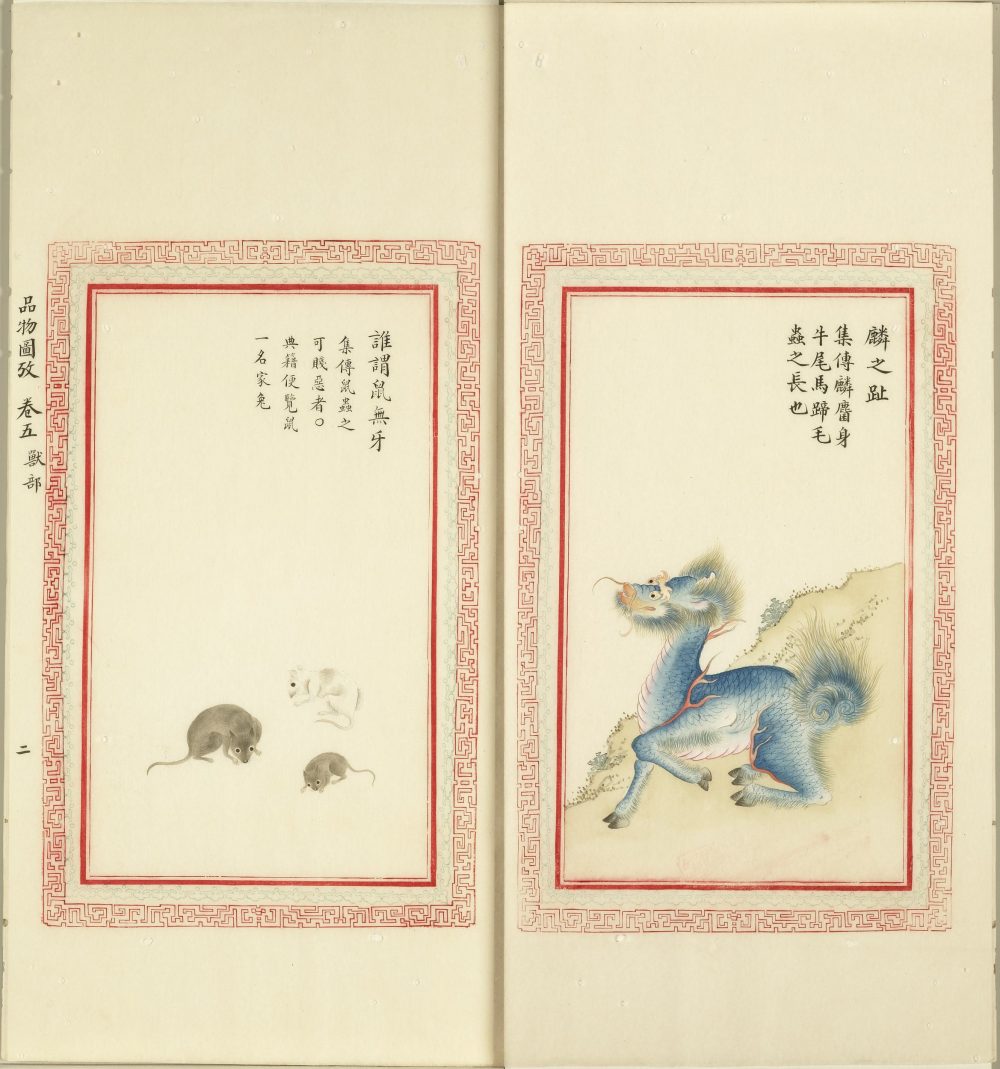 麟之趾
集傳麟麕身
牛尾馬蹄毛
蟲之長也
誰謂鼠無牙
集傳鼠蟲之
可賤惡者○
典籍便覽鼠
一名家兔
品物圖攷 卷五 獸部
二